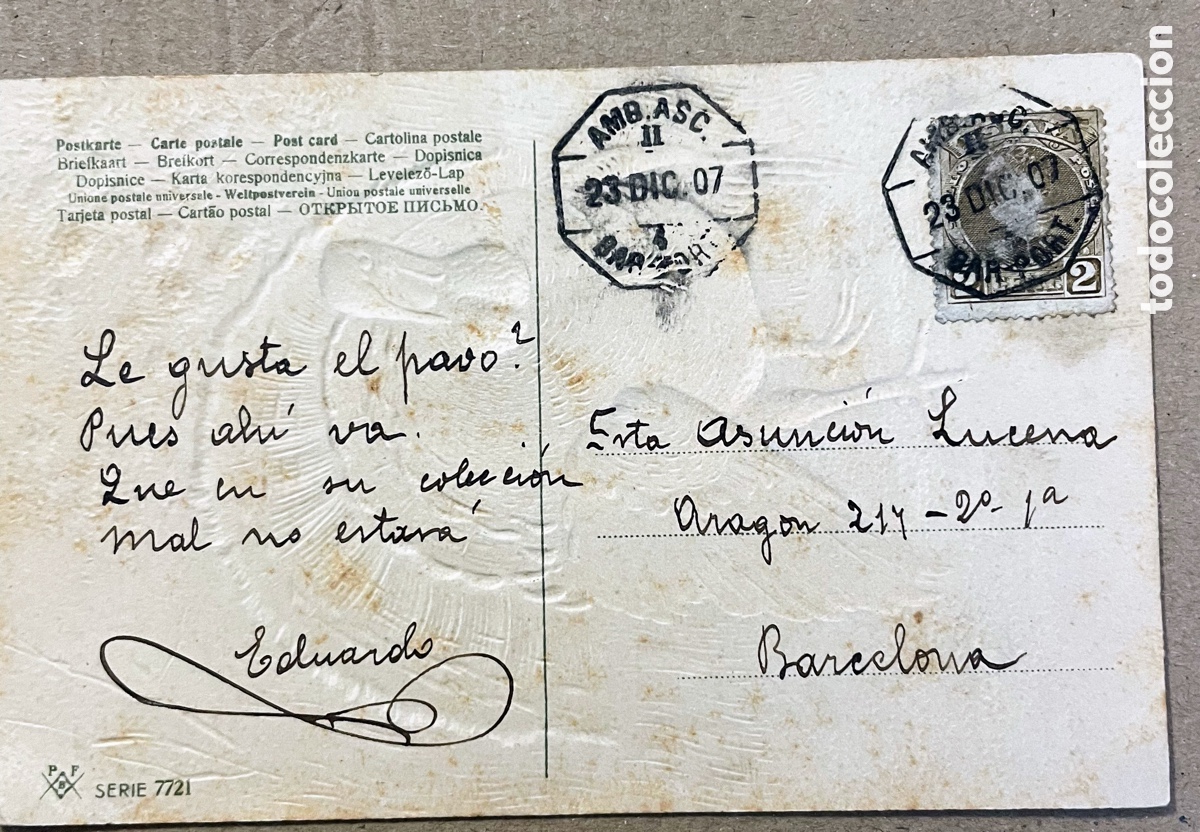 Postkarte — Carte postale — Post card — Cartolina postale
Briefkaart — Brefkort — Correspondenzkarte — Dopisnica
Dopisnice — Karta korespondencyjna — Levelező-Lap
Unione postale universale - Weltpostverein - Union postale universelle
Tarjeta postal — Cartão postal — ОТКРЫТОЕ ПИСЬМО.
AMB. ASC.
II
23 DIC. 07
BAR
PORT.
AMB.
II
23 DIC. 07
BAR. PORT.
2
Le gusta el pavo?
Pues ahí va.
Que en su colección
mal no estará
Eduardo
Srta Asunción Lucena
Aragon 217 - 2º - 1ª
Barcelona
P F
B
SERIE 7721
todocoleccion